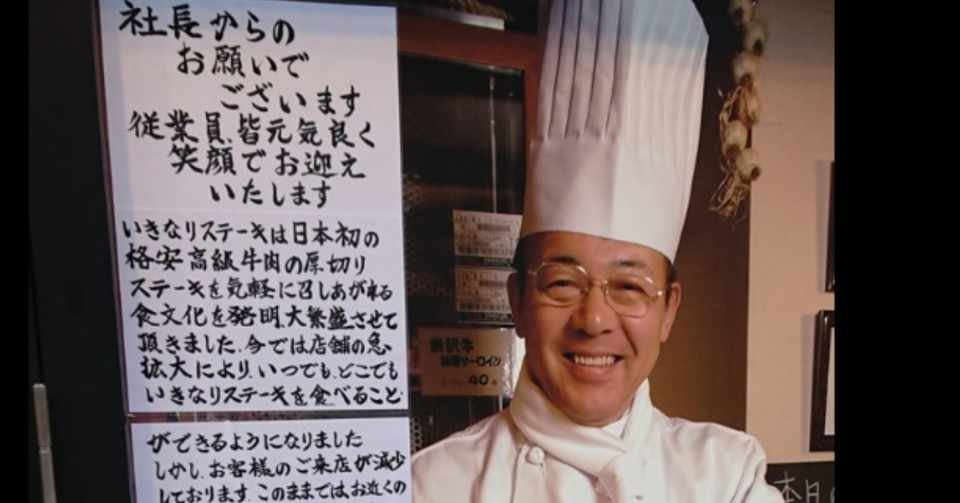 社長からの
お願いで
ございます
従業員、皆元気良く
笑顔でお迎え
いたします
いきなりステーキは日本初の
格安高級牛肉の厚切り
ステーキを気軽に召しあがれる
食文化を発明、大繁盛させて
頂きました。今では店舗の急
拡大により、いつでも、どこでも
いきなりステーキを食べること
ができるようになりました
しかし、お客様のご来店が減少
しております。このままではお近くの
サーロイン
40
本日の